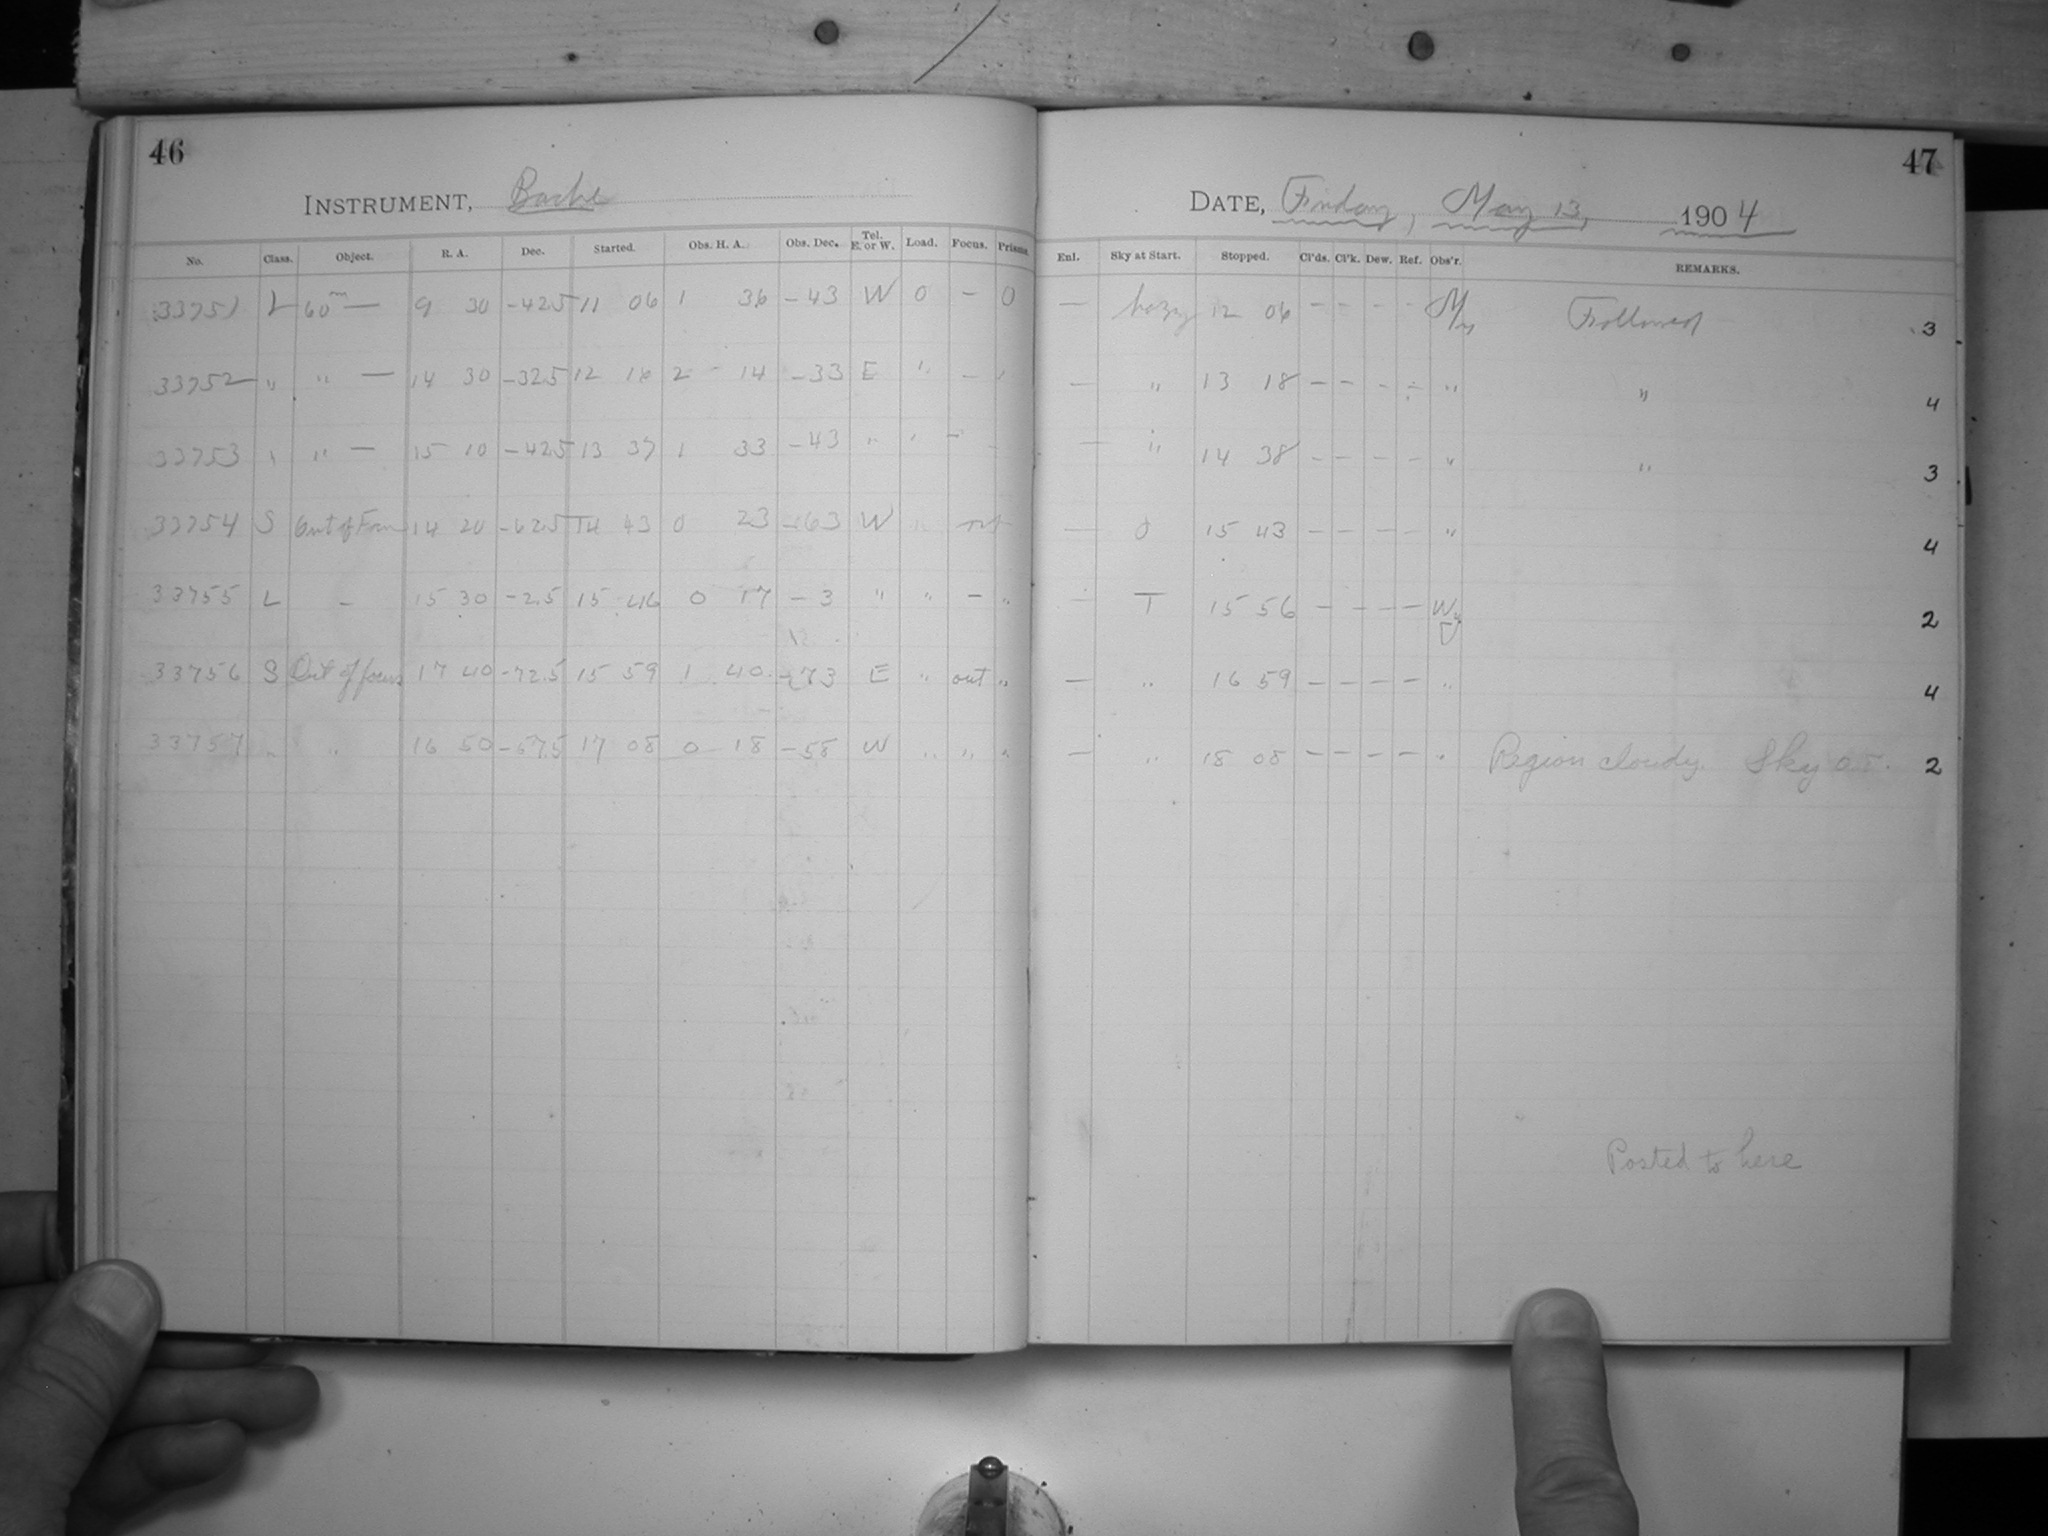 46
INSTRUMENT, Bache
No. Class. Object. R. A. Dec. Started. Obs. H. A. Obs. Dec. Tel. E. or W. Load. Focus. Prisms.
33751 L 60m — 9 30 -42.5 11 06 1 36 -43 W 0 - 0
33752 " " — 14 30 -32.5 12 16 2 14 -33 E " - "
33753 " " — 15 10 -42.5 13 37 1 33 -43 " " - -
33754 S Out of Focus 14 20 -62.5 14 43 0 23 -63 W " out
33755 L - 15 30 -2.5 15 46 0 17 -3 " " - "
33756 S Out of focus 17 40 -72.5 15 59 1 40 -73 E " out "
33757 " " 16 50 -57.5 17 08 0 18 -58 W " " "
47
DATE, Friday, May 13, 1904
Enl. Sky at Start. Stopped. Cl'ds. Cl'k. Dew. Ref. Obs'r. REMARKS.
— hazy 12 06 - - - - Followed 3
— " 13 18 - - - - " " 4
— " 14 38 - - - - " " 3
— 0 15 43 - - - - " 4
- T 15 56 - - - - 2
— " 16 59 - - - - " 4
— " 18 08 - - - - " Region cloudy. Sky 2
Posted to here